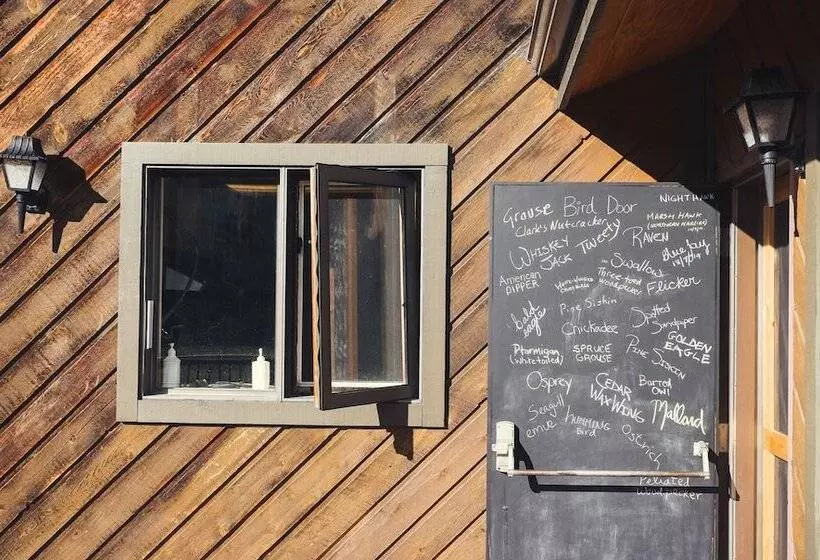 NIGHTHAWK
Grouse Bird Door
MARSH HAWK
Clark's Nutcracker
Tweety
RAVEN
WHISKEY
JACK
Blue Jay
Swallow
American
DIPPER
Three toed
woodpecker
Flicker
Pine Siskin
bald
eagle
Spotted
Sandpiper
Chickadee
GOLDEN
EAGLE
Ptarmigan
(white tailed)
SPRUCE
GROUSE
Pine Siskin
Osprey
CEDAR
WAXWING
Barred
OWL
Mallard
Seagull
emue
HUMMING
Bird
Ostrich
Pileated
Woodpecker